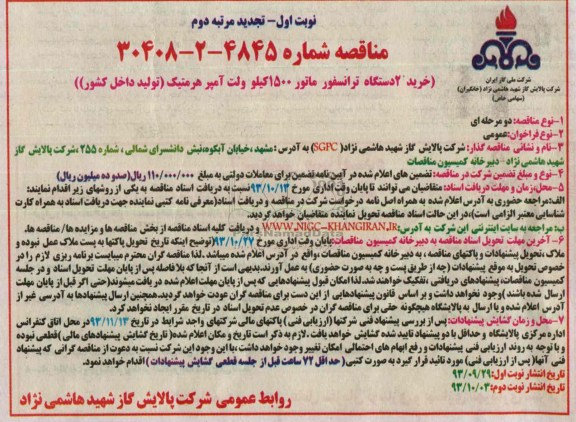 نوبت اول- تجدید مرتبه دوم
مناقصه شماره ۴۸۴۵-۲-۳۰۴۰۸
(خرید ۲دستگاه ترانسفور ماتور ۱۵۰۰کیلو ولت آمپر هرمتیک (تولید داخل کشور))
شرکت ملی گاز ایران
شرکت پالایش گاز شهید هاشمی نژاد (خانگیران)
(سهامی خاص)
۱-نوع مناقصه: دو مرحله ای
۲-نوع فراخوان:عمومی
۳-نام و نشانی مناقصه گذار: شرکت پالایش گاز شهید هاشمی نژاد( SGPC) به آدرس : مشهد،خیابان آبکوه،نبش دانشسرای شمالی ، شماره ۲۵۵ ،شرکت پالایش گاز
شهید هاشمی نژاد- دبیرخانه کمیسیون مناقصات
۴-نوع و مبلغ تضمین شرکت در مناقصه: تضمین های اعلام شده در آیین نامه تضمین برای معاملات دولتی به مبلغ ۱۱۰/۰۰۰/۰۰۰ ریال(صدو ده میلیون ریال)
۵-محل،زمان و مهلت دریافت اسناد: متقاضیان می توانند تا پایان وقت اداری مورخ ۹۳/۱۰/۱۳ نسبت به دریافت اسناد مناقصه به یکی از روشهای زیر اقدام نمایند:
الف:مراجعه حضوری به آدرس اعلام شده به همراه اصل نامه درخواست شرکت در مناقصه و دریافت اسناد(معرفی نامه کتبی نماینده جهت دریافت اسناد به همراه کارت
شناسایی معتبر الزامی است)،در این حالت اسناد مناقصه تحویل نماینده متقاضیان خواهد گردید.
ب: مراجعه به سایت اینترنتی این شرکت به آدرس: WWW.NIGC-KHANGIRAN.IR و دریافت کلیه اسناد مناقصه از بخش مناقصه ها و مزایده ها/ مناقصه ها.
۶-آخرین مهلت تحویل اسناد مناقصه به دبیرخانه کمیسیون مناقصات: پایان وقت اداری مورخ ۹۳/۱۰/۲۷ (توضیح اینکه تاریخ تحویل پاکتها به پست ملاک عمل نبوده و
ملاک ،تحویل پیشنهادات و پاکتهای مناقصه ، به دبیرخانه کمیسیون مناقصات ،واقع در آدرس اعلام شده میباشد .لذا مناقصه گران محترم میبایست برنامه ریزی لازم را در
خصوص تحویل به موقع پیشنهادات (چه از طریق پست و چه به صورت حضوری) به عمل آورند.بدیهی است از آنجا که بلا فاصله پس از پایان مهلت تحویل اسناد و در جلسه
کمیسیون مناقصات، پیشنهادهای دریافتی ،تفکیک خواهند شد.لذا امکان قبول پیشنهادهایی که پس از پایان مهلت اعلام شده دریافت میشوند(حتی اگر قبل از پایان مهلت
ارسال شده باشند )وجود نخواهد داشت و بر اساس قانون پیشنهادهایی از این دست برای مناقصه گران عودت خواهد گردید.همچنین ارسال پیشنهادها به آدرسی غیر از
آدرس اعلام شده و یا ارسال به پالایشگاه هیچگونه حقی برای مناقصه گران در خصوص عدم تحویل اسناد در تاریخ مقرر ایجاد نخواهد کرد.
۷-محل و زمان گشایش پیشنهادات: پس از بررسی پیشنهاد فنی شرکتها (ارزیابی فنی ) پاکتهای مالی شرکتهای واجد شرایط در تاریخ ۹۳/۱۱/۱۳ در محل اتاق کنفرانس
اداره مرکزی پالایشگاه و حداقل با دو پیشنهاد تایید شده گشایش خواهد یافت.لازم به ذکر است تاریخ و مکان اعلام شده( تاریخ گشایش پیشنهادهای مالی )قطعی نبوده
و با توجه به روند ارزیابی فنی پیشنهادات و رفع ابهام های احتمالی امکان تغییر وجود خواهد داشت،با این وجود این شرکت نسبت به دعوت از مناقصه گرانی که پیشنهاد
فنی آنها( پس از ارزیابی فنی ) مورد تائید قرار گیرد به صورت کتبی (حداقل ۷۲ ساعت قبل از جلسه قطعی گشایش پیشنهادات )اقدام خواهد نمود.
تاریخ انتشار نوبت اول: ۹۳/۰۹/۲۹
تاریخ انتشار نوبت دوم: ۹۳/۱۰/۰۳
روابط عمومی شرکت پالایش گاز شهید هاشمی نژاد